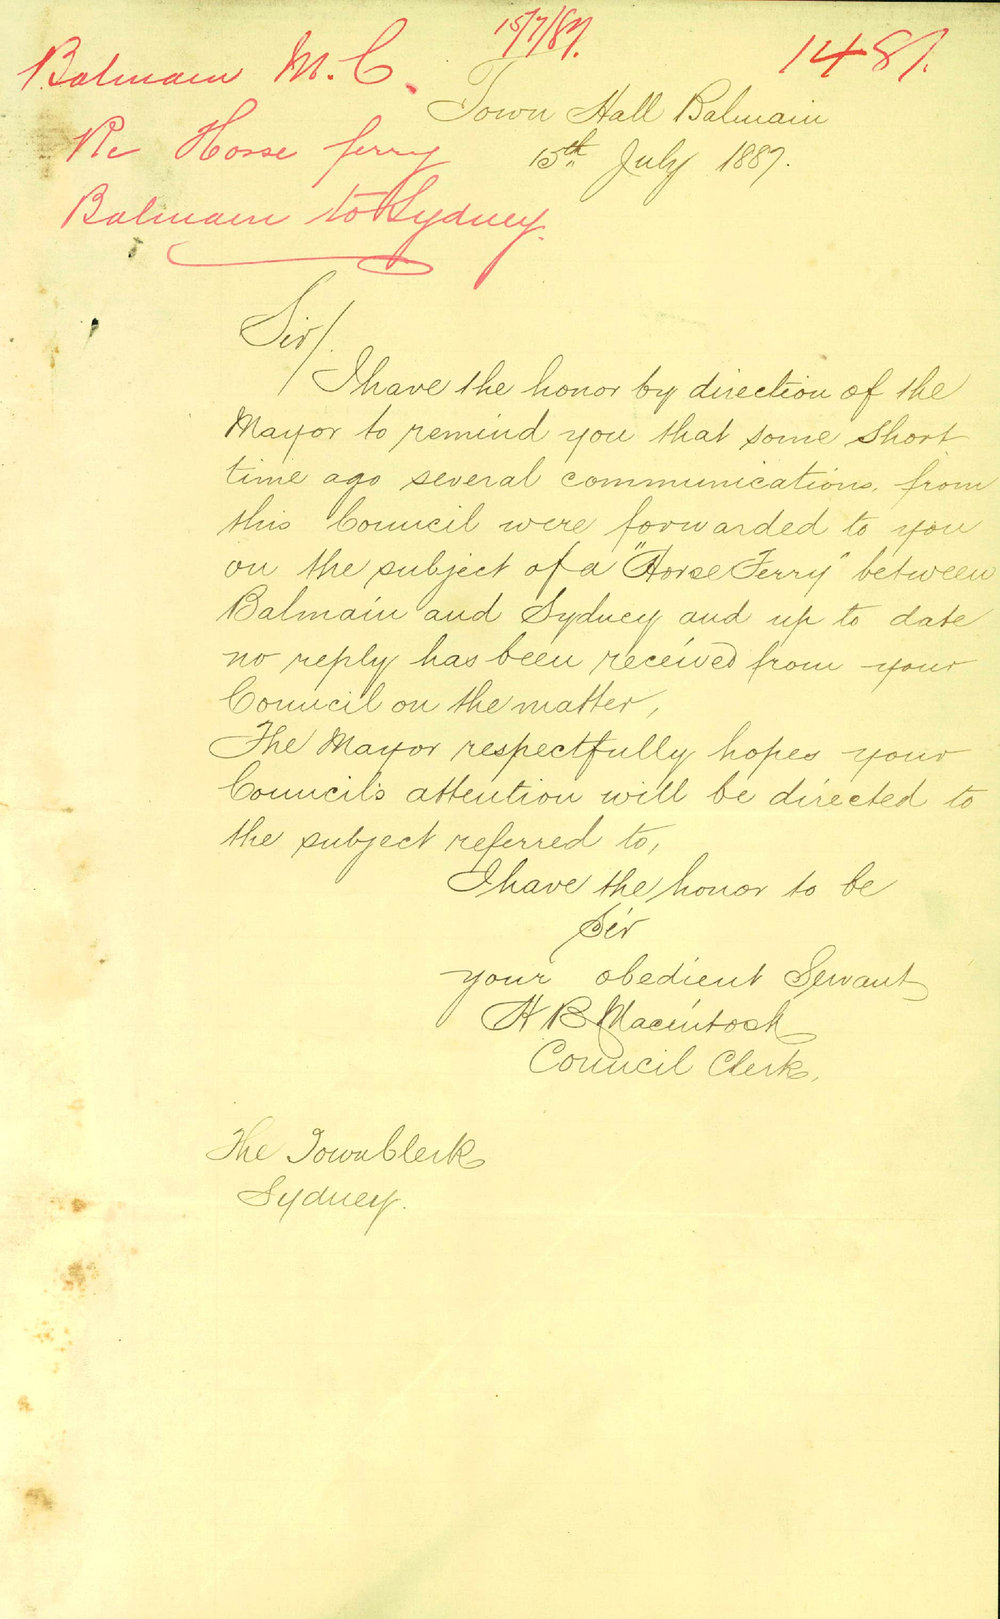 15/7/87.
1487.
Balmain M.C.
Re Horse ferry
Balmain to Sydney.
Town Hall Balmain
15th July 1887.
Sir/.
I have the honor by direction of the
Mayor to remind you that some short
time ago several communications, from
this Council were forwarded to you
on the subject of a "Horse Ferry" between
Balmain and Sydney and up to date
no reply has been received from your
Council on the matter,
The Mayor respectfully hopes your
Council's attention will be directed to
the subject referred to,
I have the honor to be
Sir
your obedient Servant
H B Macintosh
Council Clerk,
The Town Clerk
Sydney.